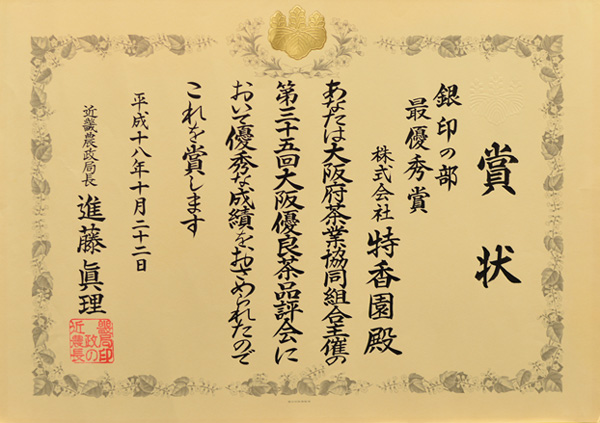 賞状
銀印の部
最優秀賞
株式会社 特香園殿
あなたは大阪府茶業協同組合主催の
第三十五回大阪優良茶品評会に
おいて優秀な成績をおさめられたので
これを賞します
平成十八年十月二十二日
近畿農政局長 進藤眞理
近畿農政局長の印